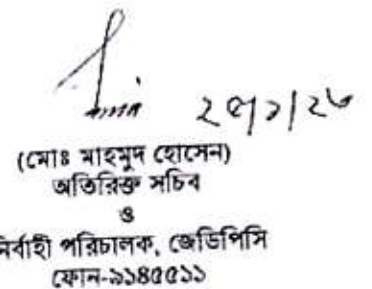 (মোঃ মাহমুদ হোসেন)
অতিরিক্ত সচিব
ও
নির্বাহী পরিচালক, জেডিপিসি
ফোন-৯১৪৫৫১১